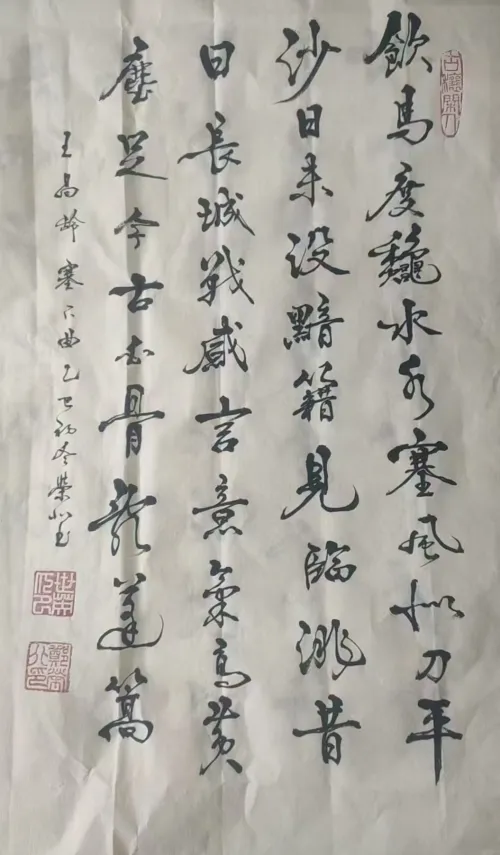 飲馬度龝水水塞風似刀平
沙日未没黯籍見臨洮昔
日長城戰感言意氣高黄
塵足今古白骨亂蓬篙
王昌齡 塞下曲 乙巳初冬榮